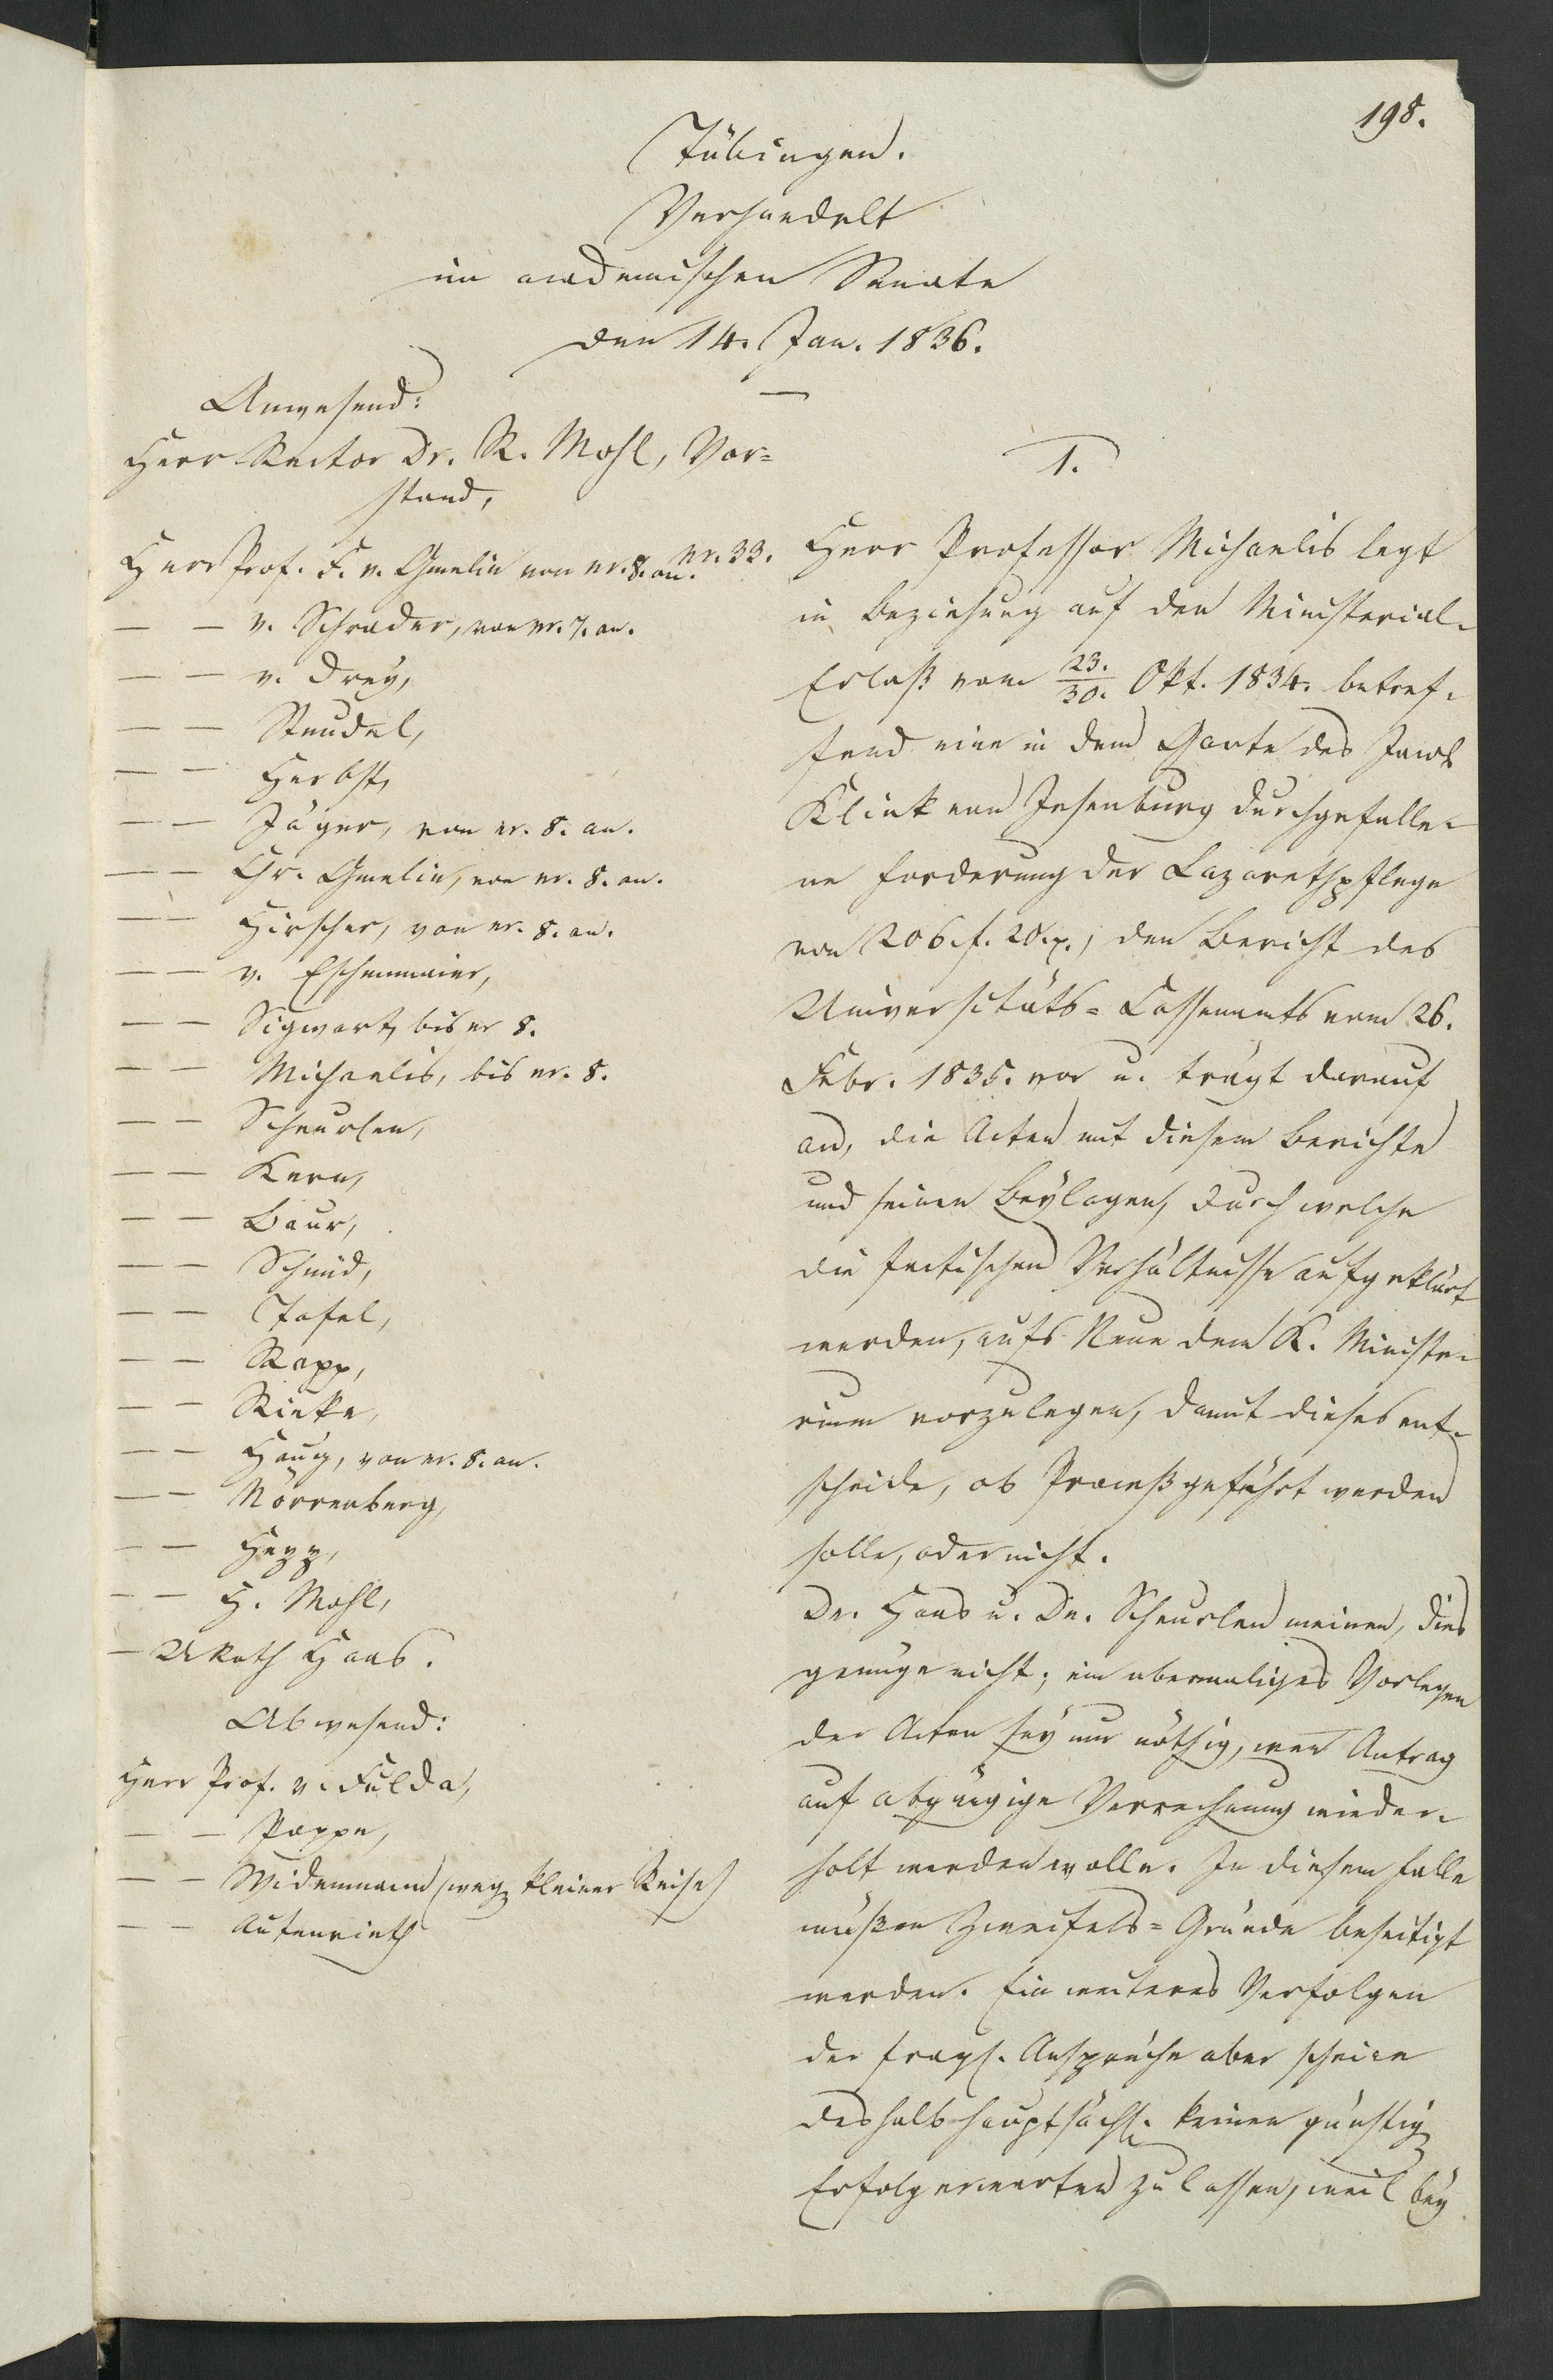 198.
Tübingen.
Verhandelt
im academischen Senate
den 14. Jan. 1836.
Anwesend:
Herr Rector Dr. R. Mohl, Vor=
stand,
Herr Prof. F. v. Gmelin von nr. 8. an. nr. 33.
— — v. Schrader, von nr. 7. an.
— — v. Drey,
— — Steudel,
— — Herbst,
— — Jäger, von nr. 8. an.
— — Chr. Gmelin, von nr. 8. an.
— — Hirscher, von nr. 8. an.
— — v. Eschenmaier,
— — Sigwart, bis nr 8.
— — Michaelis, bis nr. 8.
— — Scheurlen,
— — Kern,
— — Baur,
— — Schmid,
— — Tafel,
— — Rapp,
— — Riecke,
— — Haug, von nr. 8. an.
— — Nörrenberg,
— — Hepp,
— — H. Mohl,
— URath Haas.
Abwesend:
Herr Prof. v. Fulda,
— — Poppe,
— — Widenmann (weg kleiner Reise)
— — Autenrieth
1.
Herr Professor Michaelis legt
in Beziehung auf den Ministerial-
Erlaß vom 23./30. Okt. 1834. betref-
fend eine in dem Gante des Jacob
Klink von Jesenburg durchgefalle-
ne Forderung der Lazarethpflege
von 206 f. 20 x., den Bericht des
Universitäts=Cassenamts vom 26.
Febr. 1835. vor u. trägt darauf
an, die Acten mit diesem Berichte
und seinen Beylagen, durch welche
die factischen Verhältnisse aufgeklärt
werden, aufs Neue dem K. Ministe-
rium vorzulegen, damit dieses ent-
scheide, ob Proceß geführt werden
solle, oder nicht.
Dr. Haas u. Dr. Scheurlen meinen, dies
genüge nicht; ein abermaliges Vorlegen
der Acten sey nur nöthig, wenn Antrag
auf abgängige Verrechnung wieder-
holt werden wolle. In diesem Falle
müßen Zweifels=Gründe beseitigt
werden. Ein weiteres Verfolgen
der fragl. Ansprüche aber scheine
deshalb hauptsächl. keinen günstig
Erfolg erwarten zu lassen, weil bey